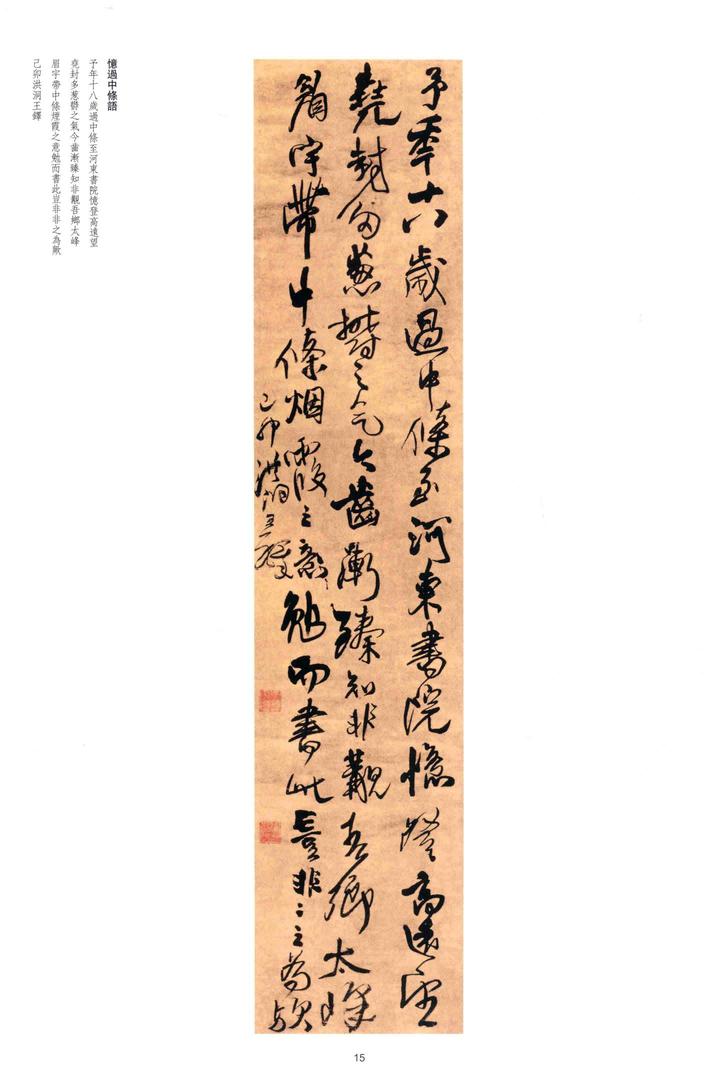 予年十八歲過中條至河東書院憶登高遠望
堯封多葱鬱之氣今齒漸臻知非觀吾鄉太峰
眉宇帶中條烟霞之意勉而書此豈非非之為歟
己卯洪洞王鐸
憶過中條語
予年十八歲過中條至河東書院憶登高遠望
堯封多葱鬱之氣今齒漸臻知非觀吾鄉太峰
眉宇帶中條煙霞之意勉而書此豈非非之為歟
己卯洪洞王鐸
15